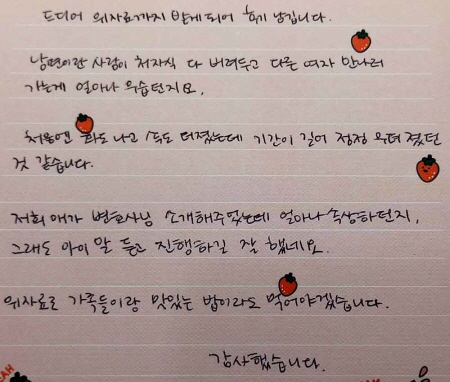 드디어 위자료까지 받게되어 후기 남깁니다.
남편이란 사람이 처자식 다 버려두고 다른 여자 만나러
가는게 얼마나 우습던지요.
처음엔 화도 나고 속도 터졌는데 기간이 길어 점점 무뎌 졌던
것 같습니다.
저희 애가 변호사님 소개해주었는데 얼마나 속상하던지,
그래도 아이 말 듣고 진행하길 잘 했네요.
위자료로 가족들이랑 맛있는 밥이라도 먹어야겠습니다.
감사했습니다.